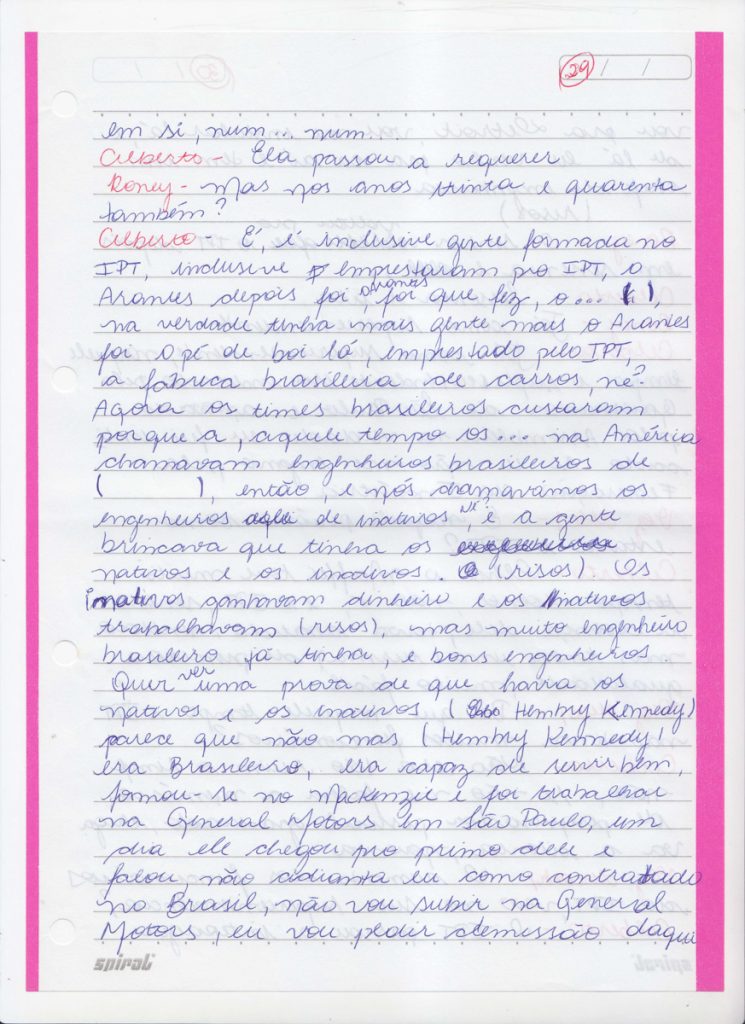 29 / /
em si, num... num...
Gilberto - Ela passou a requerer
Roney - Mas nos anos trinta e quarenta
também?
Gilberto - É, é inclusive gente formada no
IPT, inclusive emprestaram pro IPT, o
Arantes depois foi, o Arantes foi que fez, o... ( ),
na verdade tinha mais gente mais o Arantes
foi o pé de boi lá, emprestado pelo IPT,
a fábrica brasileira de carros, né?
Agora os times brasileiros custaram
porque a, aquele tempo os... na América
chamavam engenheiros brasileiros de
( ), então, e nós chamavámos os
engenheiros de inativos, né, e a gente
brincava que tinha os
nativos e os inativos. (risos). Os
inativos ganhavam dinheiro e os nativos
trabalhavam (risos), mas muito engenheiro
brasileiro já tinha, e bons engenheiros.
Quer ver uma prova de que havia os
nativos e os inativos ( Hembry Kennedy)
parece que não mas (Hembry Kennedy)
era Brasileiro, era capaz de servir bem,
formou-se no Mackenzie e foi trabalhar
na General Motors em São Paulo, um
dia ele chegou pro primo dele e
falou, não adianta eu como contratado
no Brasil, não vou subir na General
Motors, eu vou pedir demissão daqui
spiral